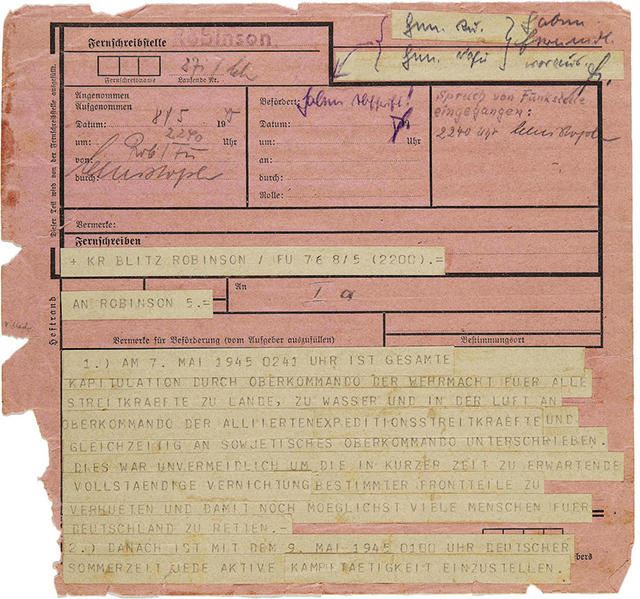 Fernschreibstelle
Robinson
Fernschreibname
Laufende Nr.
Angenommen
Aufgenommen
Datum: 8/5 1945
um: 2240 Uhr
von: Rob/Fu
durch:
Befördert:
Datum: 19
um: Uhr
an:
durch:
Rolle:
Spruch von Funkstelle
eingegangen:
2240 Uhr
Vermerke:
Fernschreiben
+ KR BLITZ ROBINSON / FU 76 8/5 (2200).=
AN ROBINSON 5.=
An
I a
Vermerke für Beförderung (vom Aufgeber auszufüllen)
Bestimmungsort
1.) AM 7. MAI 1945 0241 UHR IST GESAMTE
KAPITULATION DURCH OBERKOMMANDO DER WEHRMACHT FUER ALLE
STREITKRAEFTE ZU LANDE, ZU WASSER UND IN DER LUFT AN
OBERKOMMANDO DER ALLIIERTENEXPEDITIONSSTREITKRAEFTE UND
GLEICHZEITIG AN SOWJETISCHES OBERKOMMANDO UNTERSCHRIEBEN.
DIES WAR UNVERMEIDLICH UM DIE IN KURZER ZEIT ZU ERWARTENDE
VOLLSTAENDIGE VERNICHTUNG BESTIMMTER FRONTTEILE ZU
VERHUETEN UND DAMIT NOCH MOEGLICHST VIELE MENSCHEN FUER
DEUTSCHLAND ZU RETTEN.-
2.) DANACH IST MIT DEM 9. MAI 1945 0100 UHR DEUTSCHER
SOMMERZEIT JEDE AKTIVE KAMPFTAETIGKEIT EINZUSTELLEN.
bers
Heftrand
Dieser Teil wird von der Fernschreibstelle ausgefüllt.